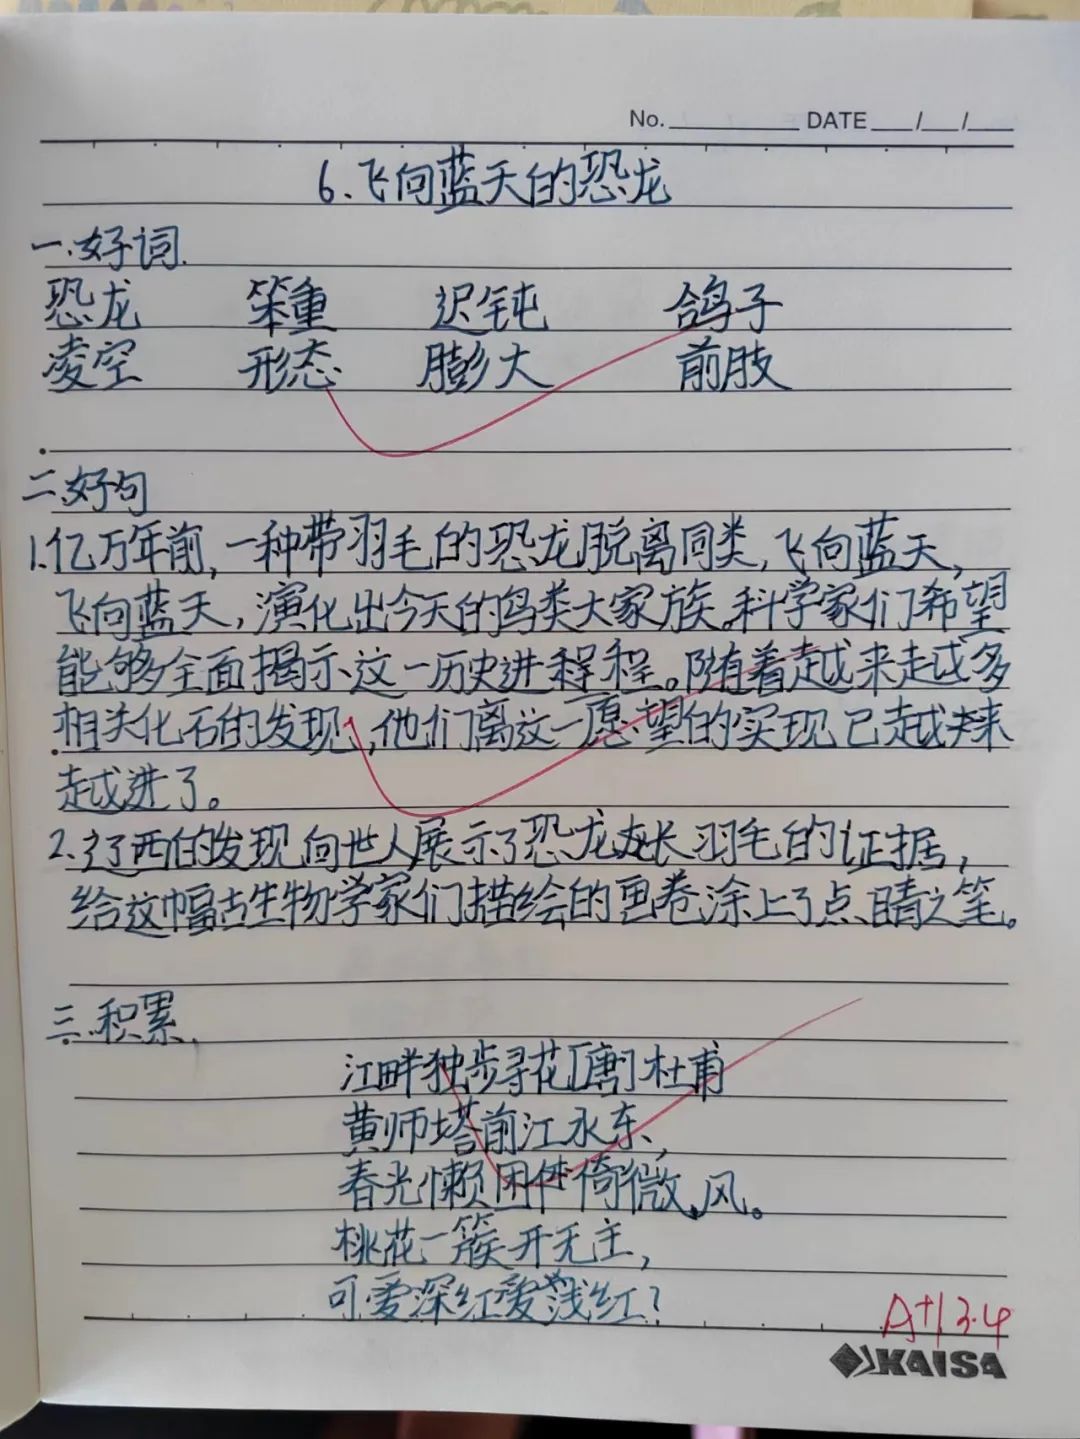 No. DATE / /
6.飞向蓝天的恐龙
一.好词.
恐龙 笨重 迟钝 鸽子
凌空 形态 膨大 前肢
二.好句
1.亿万年前,一种带羽毛的恐龙脱离同类,飞向蓝天,
飞向蓝天,演化出今天的鸟类大家族。科学家们希望
能够全面揭示这一历史进程程。随着越来越多
相关化石的发现,他们离这一愿望的实现已越来
越进了。
2.辽西的发现向世人展示了恐龙长羽毛的证据,
给这幅古生物学家们描绘的画卷涂上了点睛之笔。
三.积累.
江畔独步寻花[唐]杜甫
黄师塔前江水东,
春光懒困倚微风。
桃花一簇开无主,
可爱深红爱浅红?
A+ 3.4
KAISA